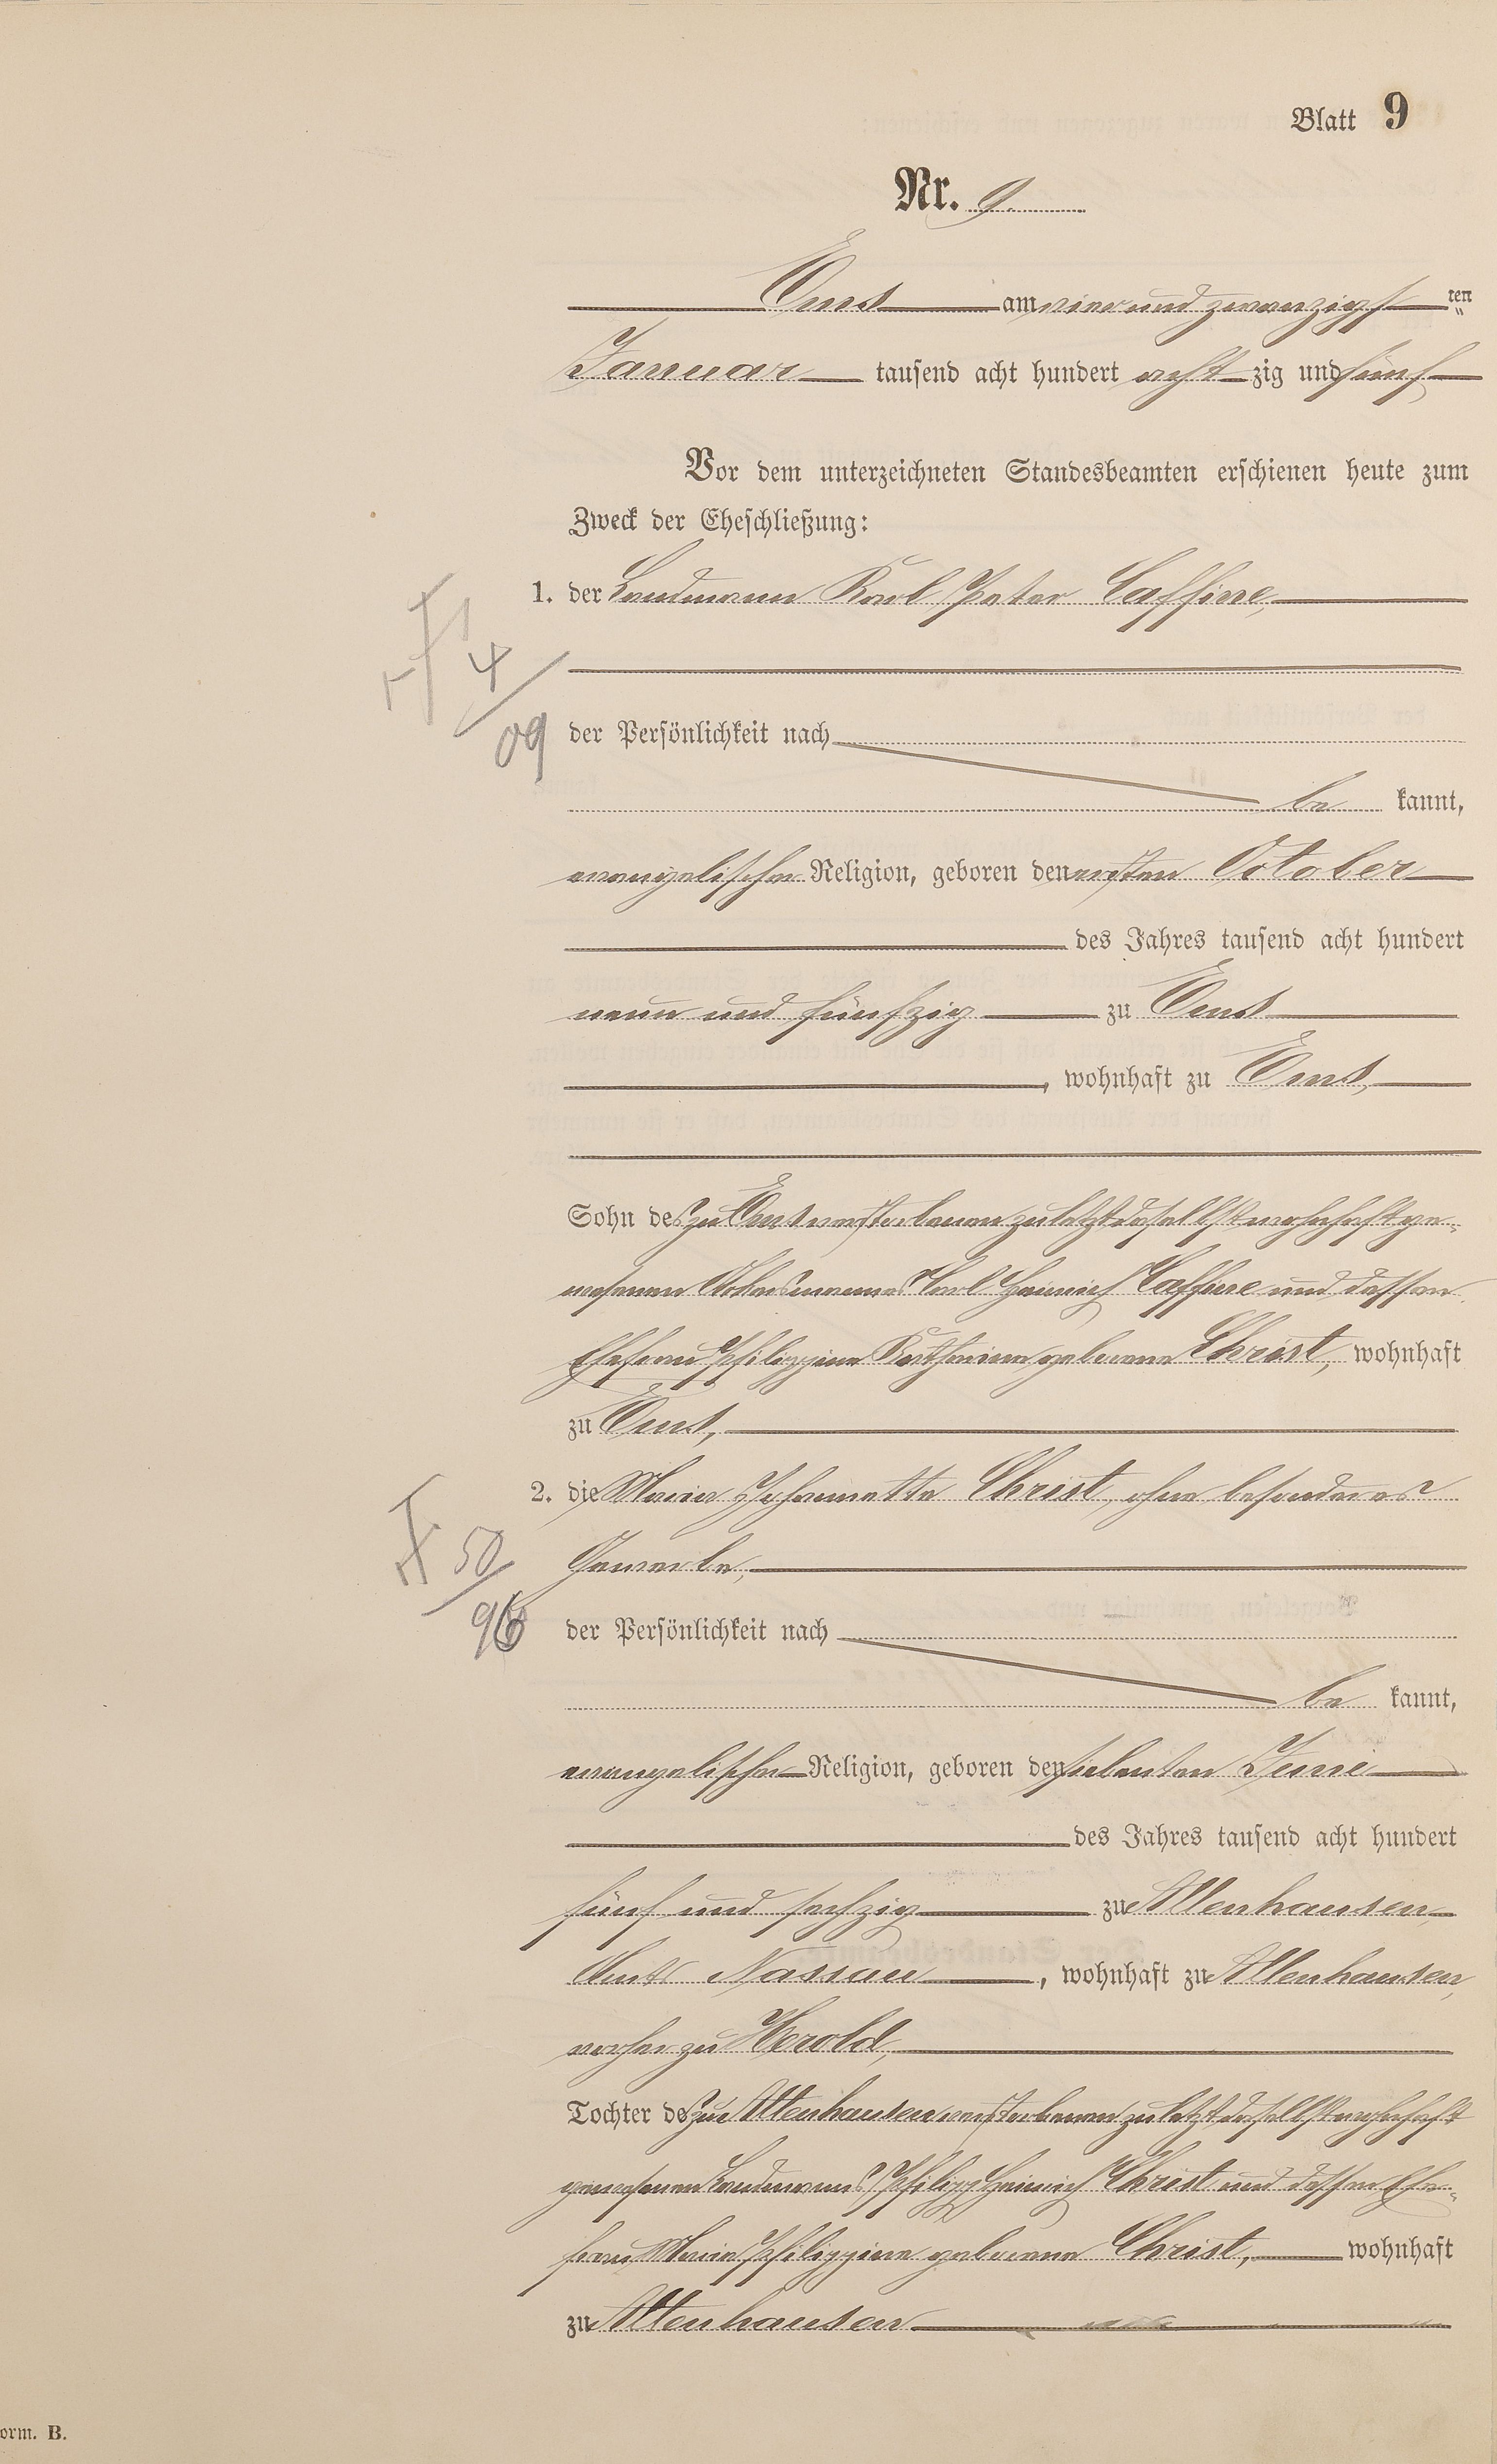 Blatt 9
Nr. 9.
Ems am vier und zwanzigs ten
Januar tausend acht hundert acht zig und fünf
Vor dem unterzeichneten Standesbeamten erschienen heute zum
Zweck der Eheschließung:
1. der Landmann Karl Peter Caffine,
4
09
der Persönlichkeit nach
be kannt,
evangelischer Religion, geboren den ersten October
des Jahres tausend acht hundert
neun und fünfzig zu Ems
, wohnhaft zu Ems,
Sohn des zu Ems verstorbenen zuletzt daselbst wohnhaft ge-
wesenen Ackersmannes Carl Heinrich Caffine und dessen
Ehefrau Philippine Katharine geborene Christ, wohnhaft
zu Ems,
2. die Marie Johannette Christ, ohne besonderes
Gewerbe,
50
96
der Persönlichkeit nach
be kannt,
evangelischer Religion, geboren den siebenten Juni
des Jahres tausend acht hundert
fünf und sechzig zu Attenhausen,
Amts Nassau, wohnhaft zu Attenhausen,
vorher zu Herold,
Tochter des zu Attenhausen verstorbenen zuletzt daselbst wohnhaft
gewesenen Landmanns Philipp Heinrich Christ und dessen Ehe-
frau Marie Philippine geborene Christ, wohnhaft
zu Attenhausen
orm. B.